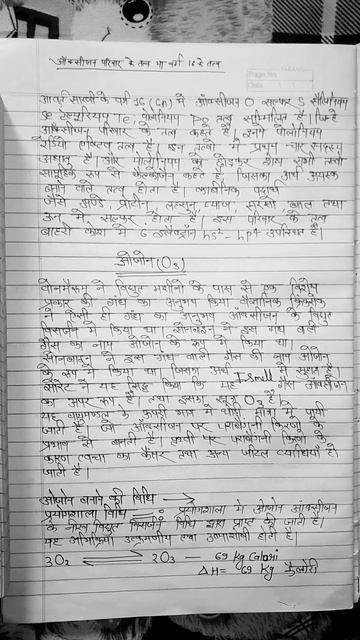 ऑक्सीजन परिवार के तत्व या वर्ग 16 के तत्व
Page No.
Date
आवर्त सारणी के वर्ग 16 (Gn) में ऑक्सीजन O सल्फर S सेलेनियम
Se टेल्यूरियम Te, पोलोनियम Po तत्व सम्मिलित है। जिन्हें
ऑक्सीजन परिवार के तत्व कहते है, इनमें पोलोनियम
रेडियो एक्टिव तत्व है। इन तत्वों में प्रथम चार सदस्य
अधातु है और पोलोनियम को छोड़कर शेष सभी तत्वों
सामूहिक रूप से कैल्कोजन कहते है, जिसका अर्थ अयस्क
बनाने वाले तत्व होता है। कार्बनिक पदार्थ
जैसे अण्डे, प्रोटीन, लहसुन, प्याज, सरसों बाल तथा
ऊन में सल्फर होता है, इस परिवार के तत्व
बाहरी कोश में 6 इलेक्ट्रॉन ns² - np⁴ उपस्थित है।
ओजोन (O₃)
वॉनमैरूम ने विद्युत मशीनों के पास से एक विशेष
प्रकार की गंध का अनुभव किया, वैज्ञानिक
ने ऐसी ही गंध का अनुभव ऑक्सीजन के विद्युत
विसर्जन में किया था। शॉनबाइन ने इस गंध वाली
गैस का नाम ओजोन के रूप में किया था।
शॉनबाइन ने इस गंध वाली गैस का नाम ओजोन
के रूप में किया था, जिसका अर्थ I smell में सूंघता है।
सॉरेट ने यह सिद्ध किया कि यह गैस ऑक्सीजन
का अपर रूप है। तथा इसका सूत्र O₃ है।
यह वायुमण्डल के ऊपरी भाग में थोड़ी मात्रा में पायी
जाती है। जो ऑक्सीजन पर पराबैंगनी किरणों के
प्रभाव से बनती है। पृथ्वी पर पराबैंगनी किरणों के
कारण त्वचा का कैंसर तथा अन्य जटिल व्याधियाँ हो
जाती है।
ओजोन बनाने की विधि →
प्रयोगशाला विधि — : प्रयोगशाला में ओजोन ऑक्सीजन
के नीरव विद्युत विसर्जन विधि द्वारा प्राप्त की जाती है।
यह अभिक्रिया उत्क्रमणीय तथा ऊष्माशोषी होती है।
3O₂ ⇌ 2O₃ - 69 kg Calori
ΔH = 69 kg कैलोरी